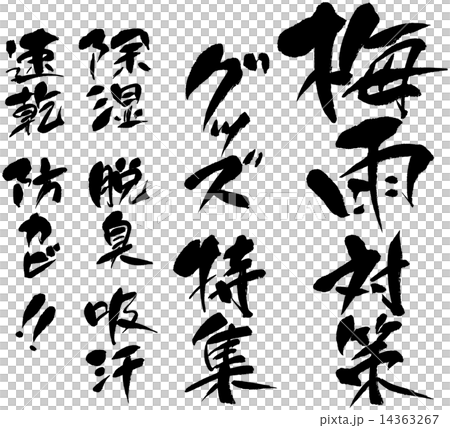 梅雨対策
グッズ特集
除湿 脱臭 吸汗
速乾 防カビ!!
PIXTA
14363267